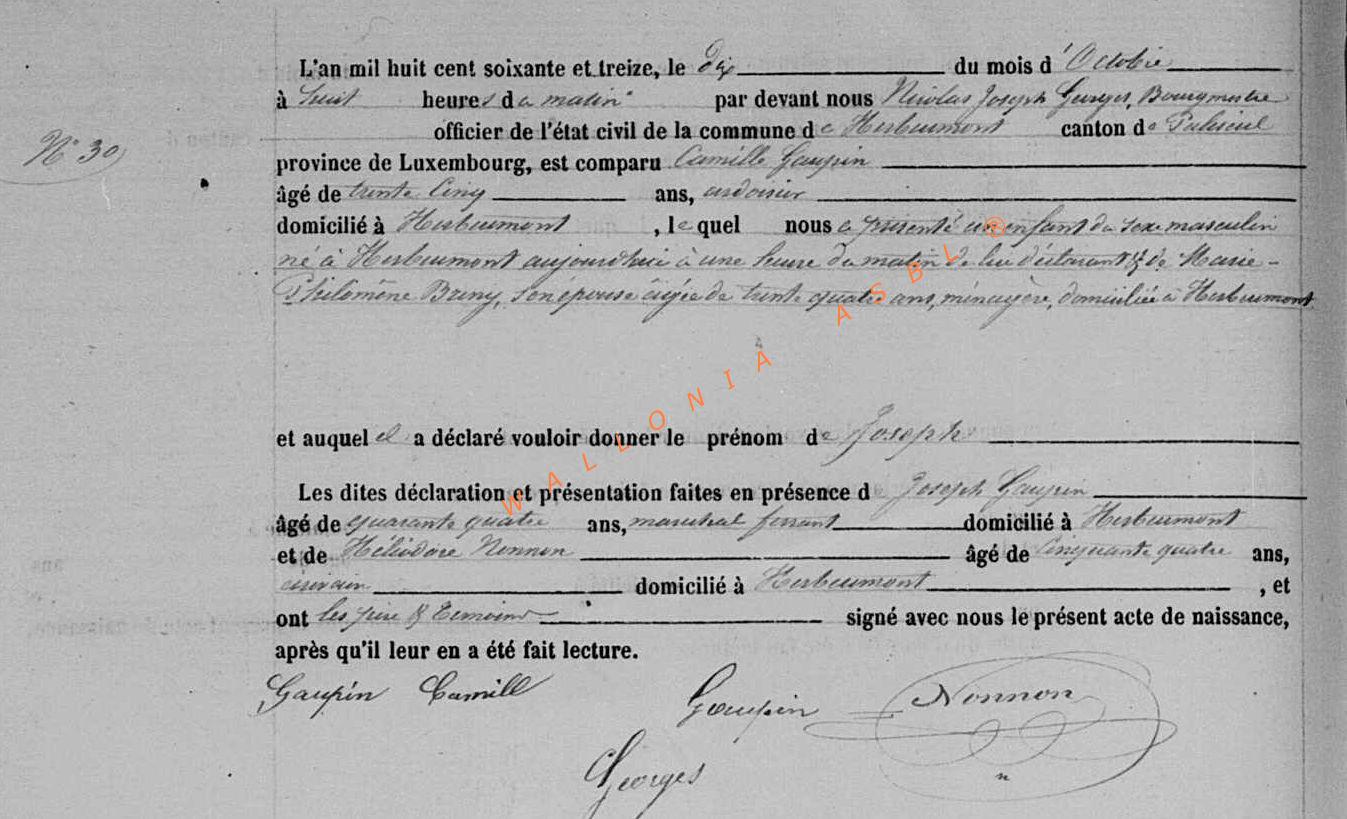 L'an mil huit cent soixante et treize, le dix du mois d'Octobre
à huit heures du matin par devant nous Nicolas Joseph Georges, Bourgmestre
officier de l'état civil de la commune de Herbeumont canton de Paliseul
N° 30
province de Luxembourg, est comparu Camille Gaupin
âgé de trente cinq ans, ardoisier
domicilié à Herbeumont, lequel nous a présenté un enfant du sexe masculin
né à Herbeumont aujourd'hui à une heure du matin de lui déclarant & de Marie-
Philomène Briny, son épouse âgée de trente quatre ans, ménagère, domiciliée à Herbeumont
et auquel il a déclaré vouloir donner le prénom de Joseph
Les dites déclaration et présentation faites en présence d Joseph Gaupin
âgé de quarante quatre ans, maréchal ferrant domicilié à Herbeumont
et de Héliodore Nonnon âgé de cinquante quatre ans,
écrivain domicilié à Herbeumont, et
ont les père & témoins signé avec nous le présent acte de naissance,
après qu'il leur en a été fait lecture.
Gaupin Camill
Gaupin
Nonnon
Georges
WALLONIA ASBL ®